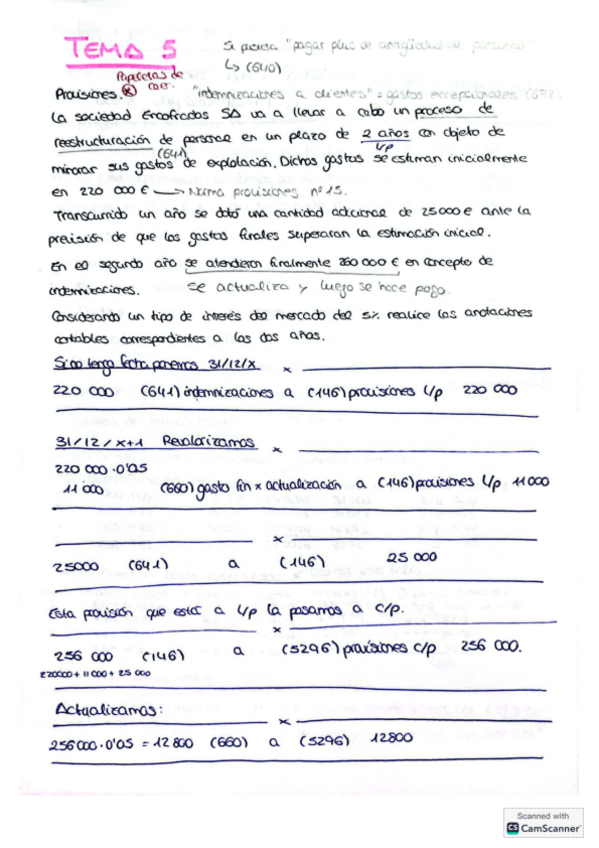 TEMA 5
Si pusiera "pagar plus de antigüedad de personal
↳ (640)
Papeletas de
Provisiones. "indemnizaciones a clientes" = gastos excepcionales (678)
La sociedad Encofrados SA va a llevar a cabo un proceso de
reestructuración de personal en un plazo de 2 años con objeto de
(641) L/p
minorar sus gastos de explotación. Dichos gastos se estiman inicialmente
en 220 000 € → Norma provisiones nº 15.
Transcurrido un año se dotó una cantidad adicional de 25000 € ante la
previsión de que los gastos finales superaran la estimación inicial.
En el segundo año se atendieron finalmente 260 000 € en concepto de
indemnizaciones. se actualiza y luego se hace pago.
Considerando un tipo de interés del mercado del 5% realice las anotaciones
contables correspondientes a los dos años.
Si no tengo fecha ponemos 31/12/x x
220 000 (641) indemnizaciones a (146) provisiones L/p 220 000
31/12/x+1 Revalorizamos x
220 000 · 0'05
11 000 (660) gasto fin x actualización a (146) provisiones L/p 11000
x
25000 (641) a (146) 25 000
Esta provisión que está a L/p la pasamos a C/p.
x
256 000 (146) a (5296) provisiones C/p 256 000.
220000 + 11000 + 25 000
Actualizamos:
x
256000 · 0'05 = 12 800 (660) a (5296) 12800
Scanned with
CS CamScanner